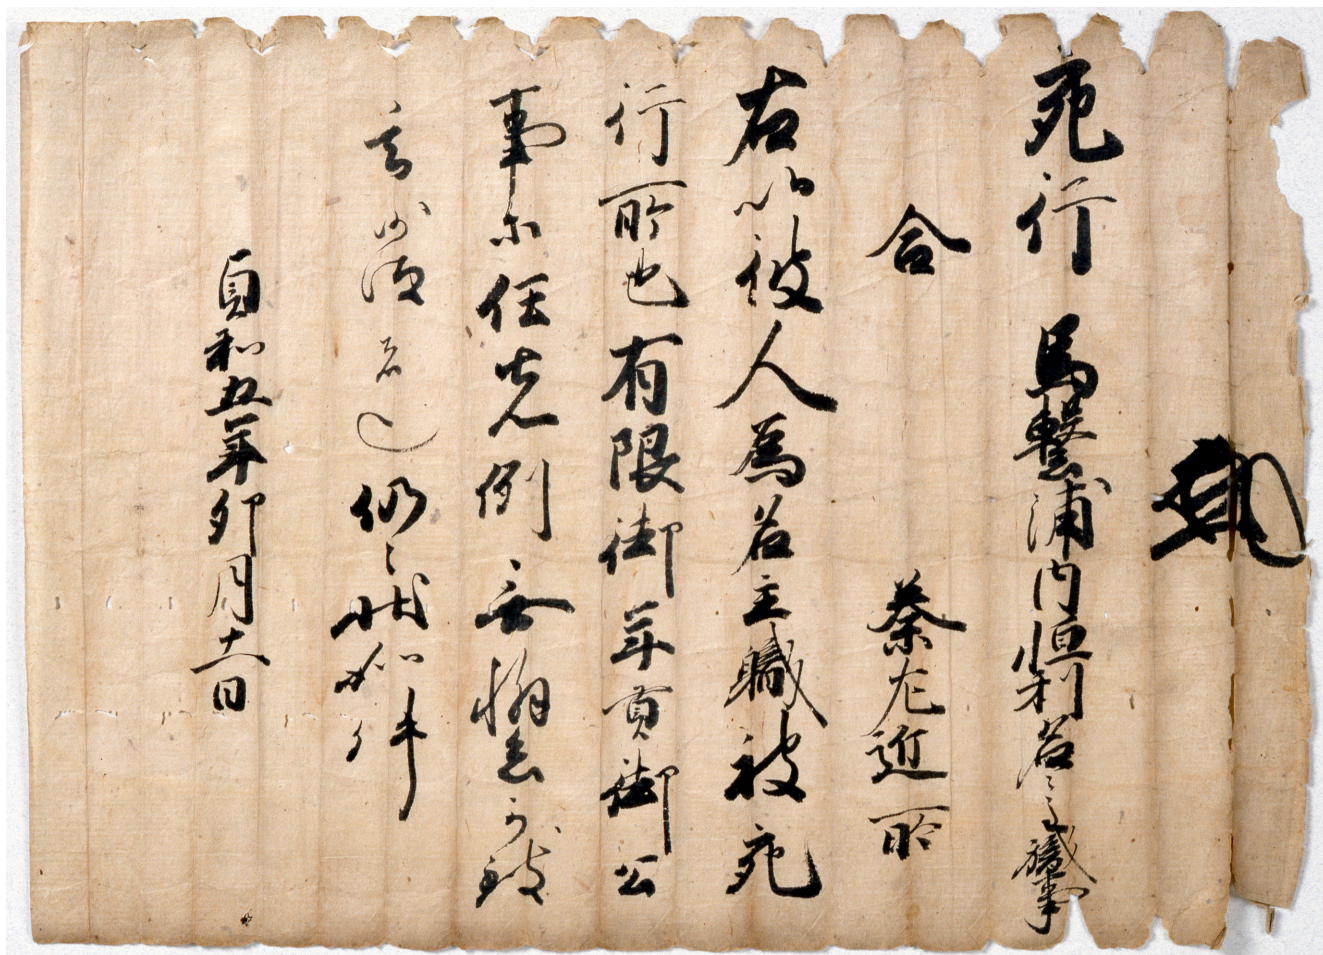 宛行 馬繋浦内恒利名々主職事
合 秦左近所
右以彼人為名主職被宛
行所也有限御年貢御公
事等任先例無懈怠可致
沙汰者也仍之状如件
貞和五年卯月十一日